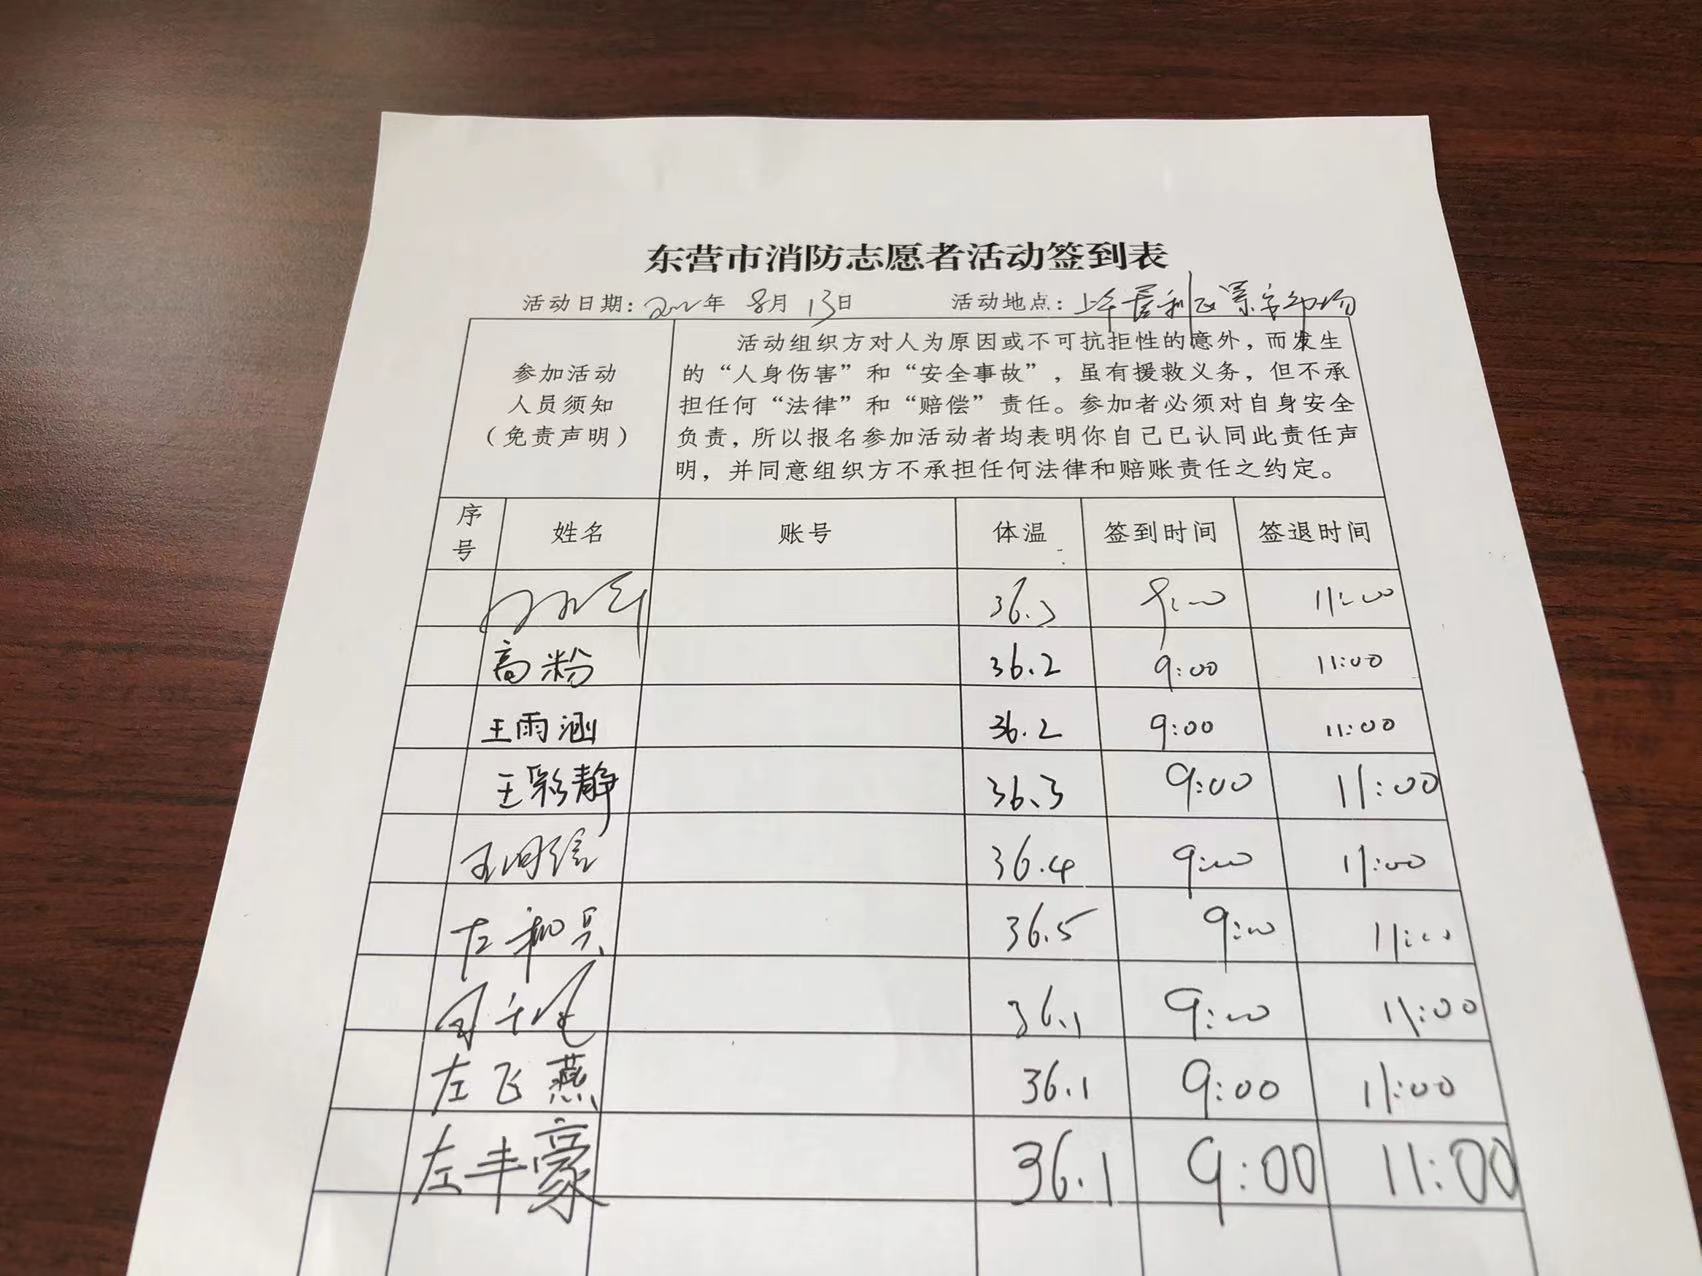 东营市消防志愿者活动签到表
活动日期: 2022年 8月 13日 活动地点:
参加活动
人员须知
（免责声明）
活动组织方对人为原因或不可抗拒性的意外，而发生
的“人身伤害”和“安全事故”，虽有援救义务，但不承
担任何“法律”和“赔偿”责任。参加者必须对自身安全
负责，所以报名参加活动者均表明你自己已认同此责任声
明，并同意组织方不承担任何法律和赔账责任之约定。
序号 姓名 账号 体温 签到时间 签退时间
36.3 9:00 11:00
高粉 36.2 9:00 11:00
王雨涵 36.2 9:00 11:00
王彩静 36.3 9:00 11:00
36.4 9:00 11:00
36.5 9:00 11:00
36.1 9:00 11:00
左飞燕 36.1 9:00 11:00
左丰豪 36.1 9:00 11:00